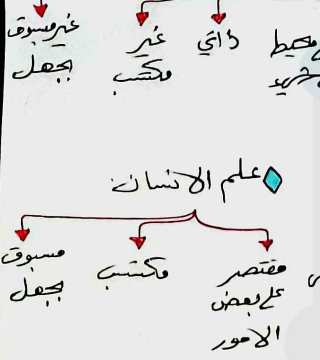 محيط
ذاتي
غير
مكتسب
غير مسبوق
بجهل
علم الانسان
مقتصر
على بعض
الامور
مكتسب
مسبوق
بجهل